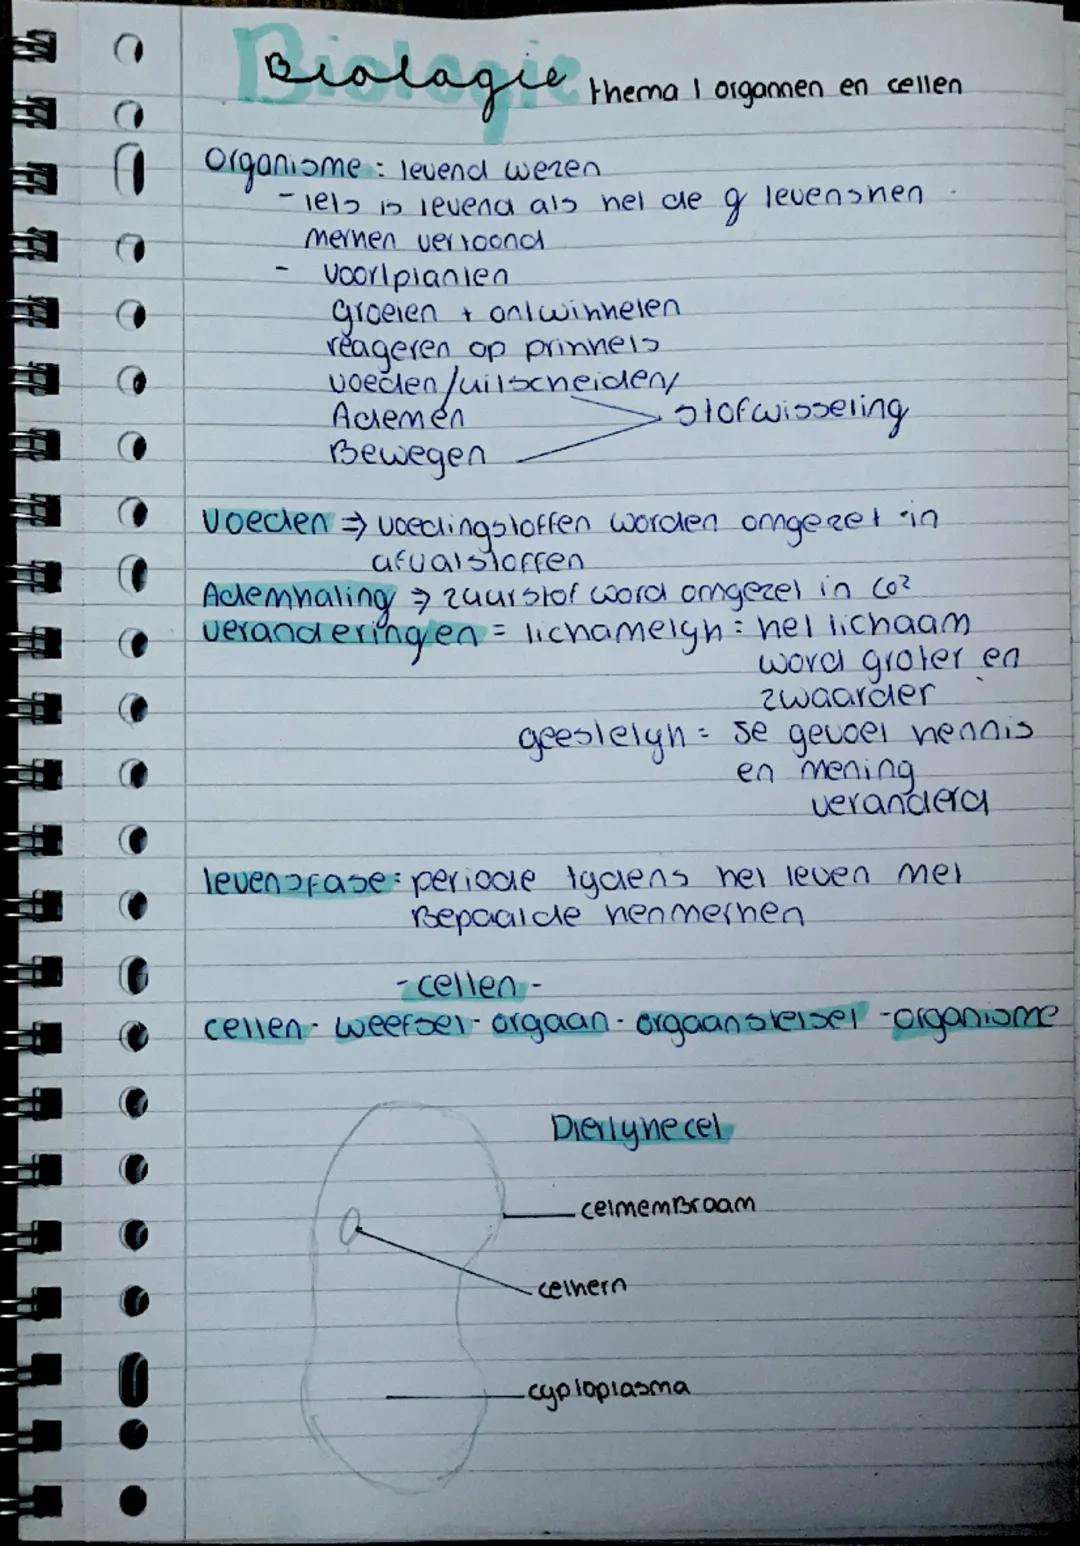 Biologie thema 1 organnen en cellen
Organisme : levend wezen
- iets is levend als het de 9 levensken
merken vertoond
- Voortplanten
groeien + ontwikkelen
reageren op prikkels
voeden/uitscheiden/
Ademen
stofwisseling
Bewegen
Voeden ⇒ voedingstoffen worden omgezet in
afvalstoffen
Ademhaling ⇒ zuurstof word omgezet in CO²
veranderingen = lichamelijk : het lichaam
word groter en
zwaarder
geestelijk = Je gevoel kennis
en mening
veranderd
levensfase : periode tijdens het leven met
Bepaalde kenmerken
- cellen -
cellen - weefsel - orgaan - orgaanstelsel - organisme
Dierlijke cel
celmemBraam
celkern
cyptoplasma